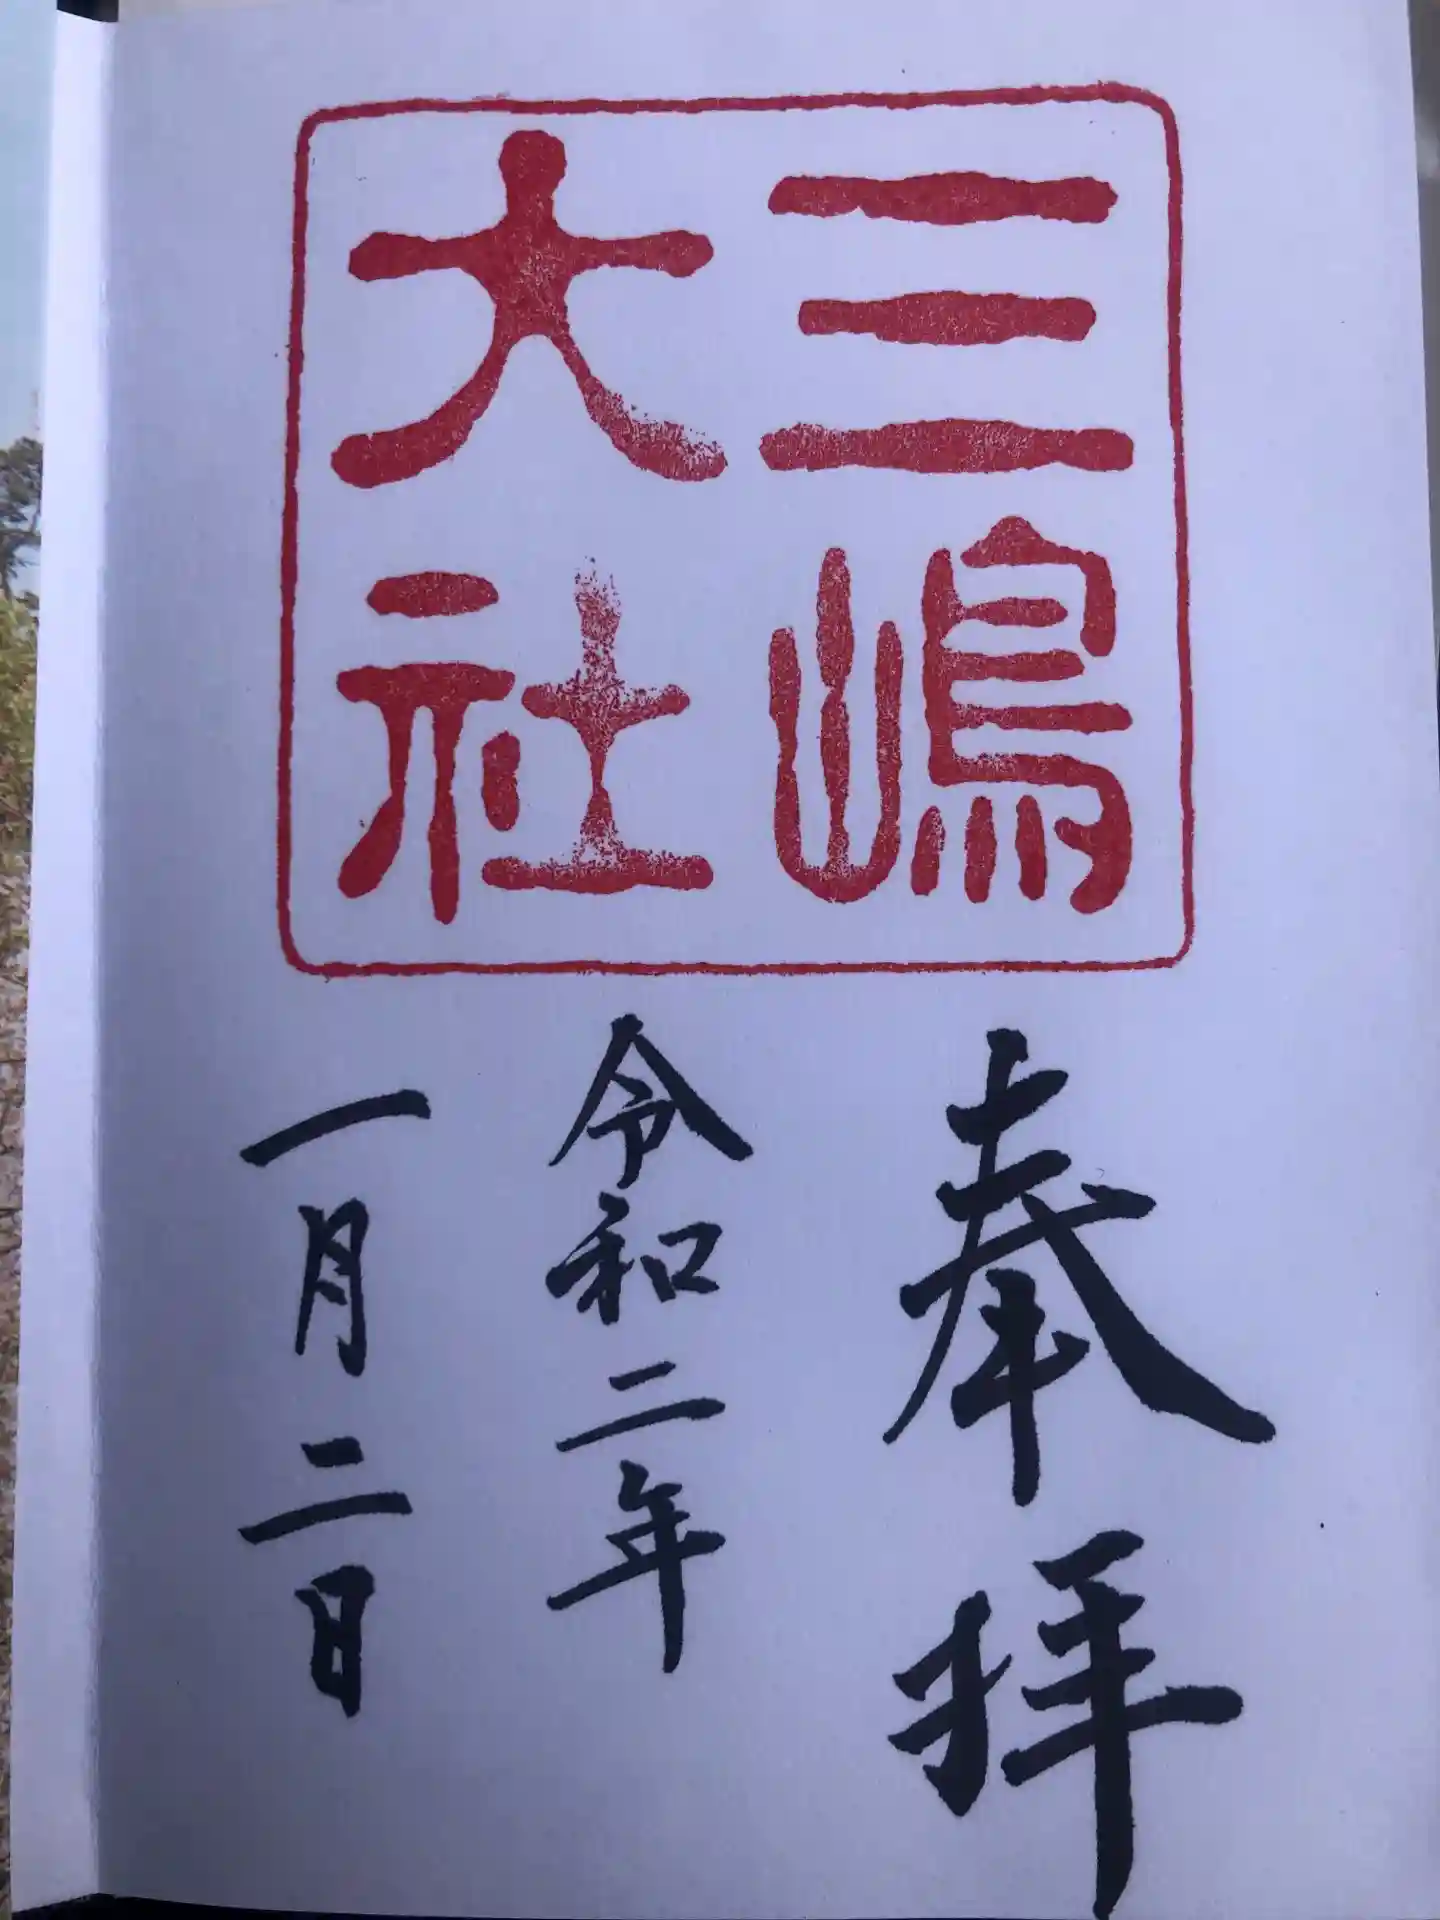 三嶋
大社
奉拝
令和二年
一月二日